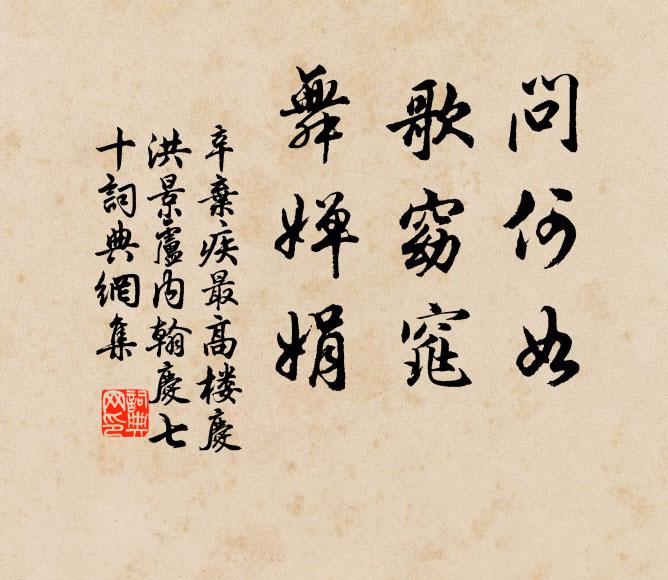 問何如
歌窈窕
舞嬋娟
辛棄疾最高楼慶
洪景廬内翰慶七
十詞典網集
詞典
网印